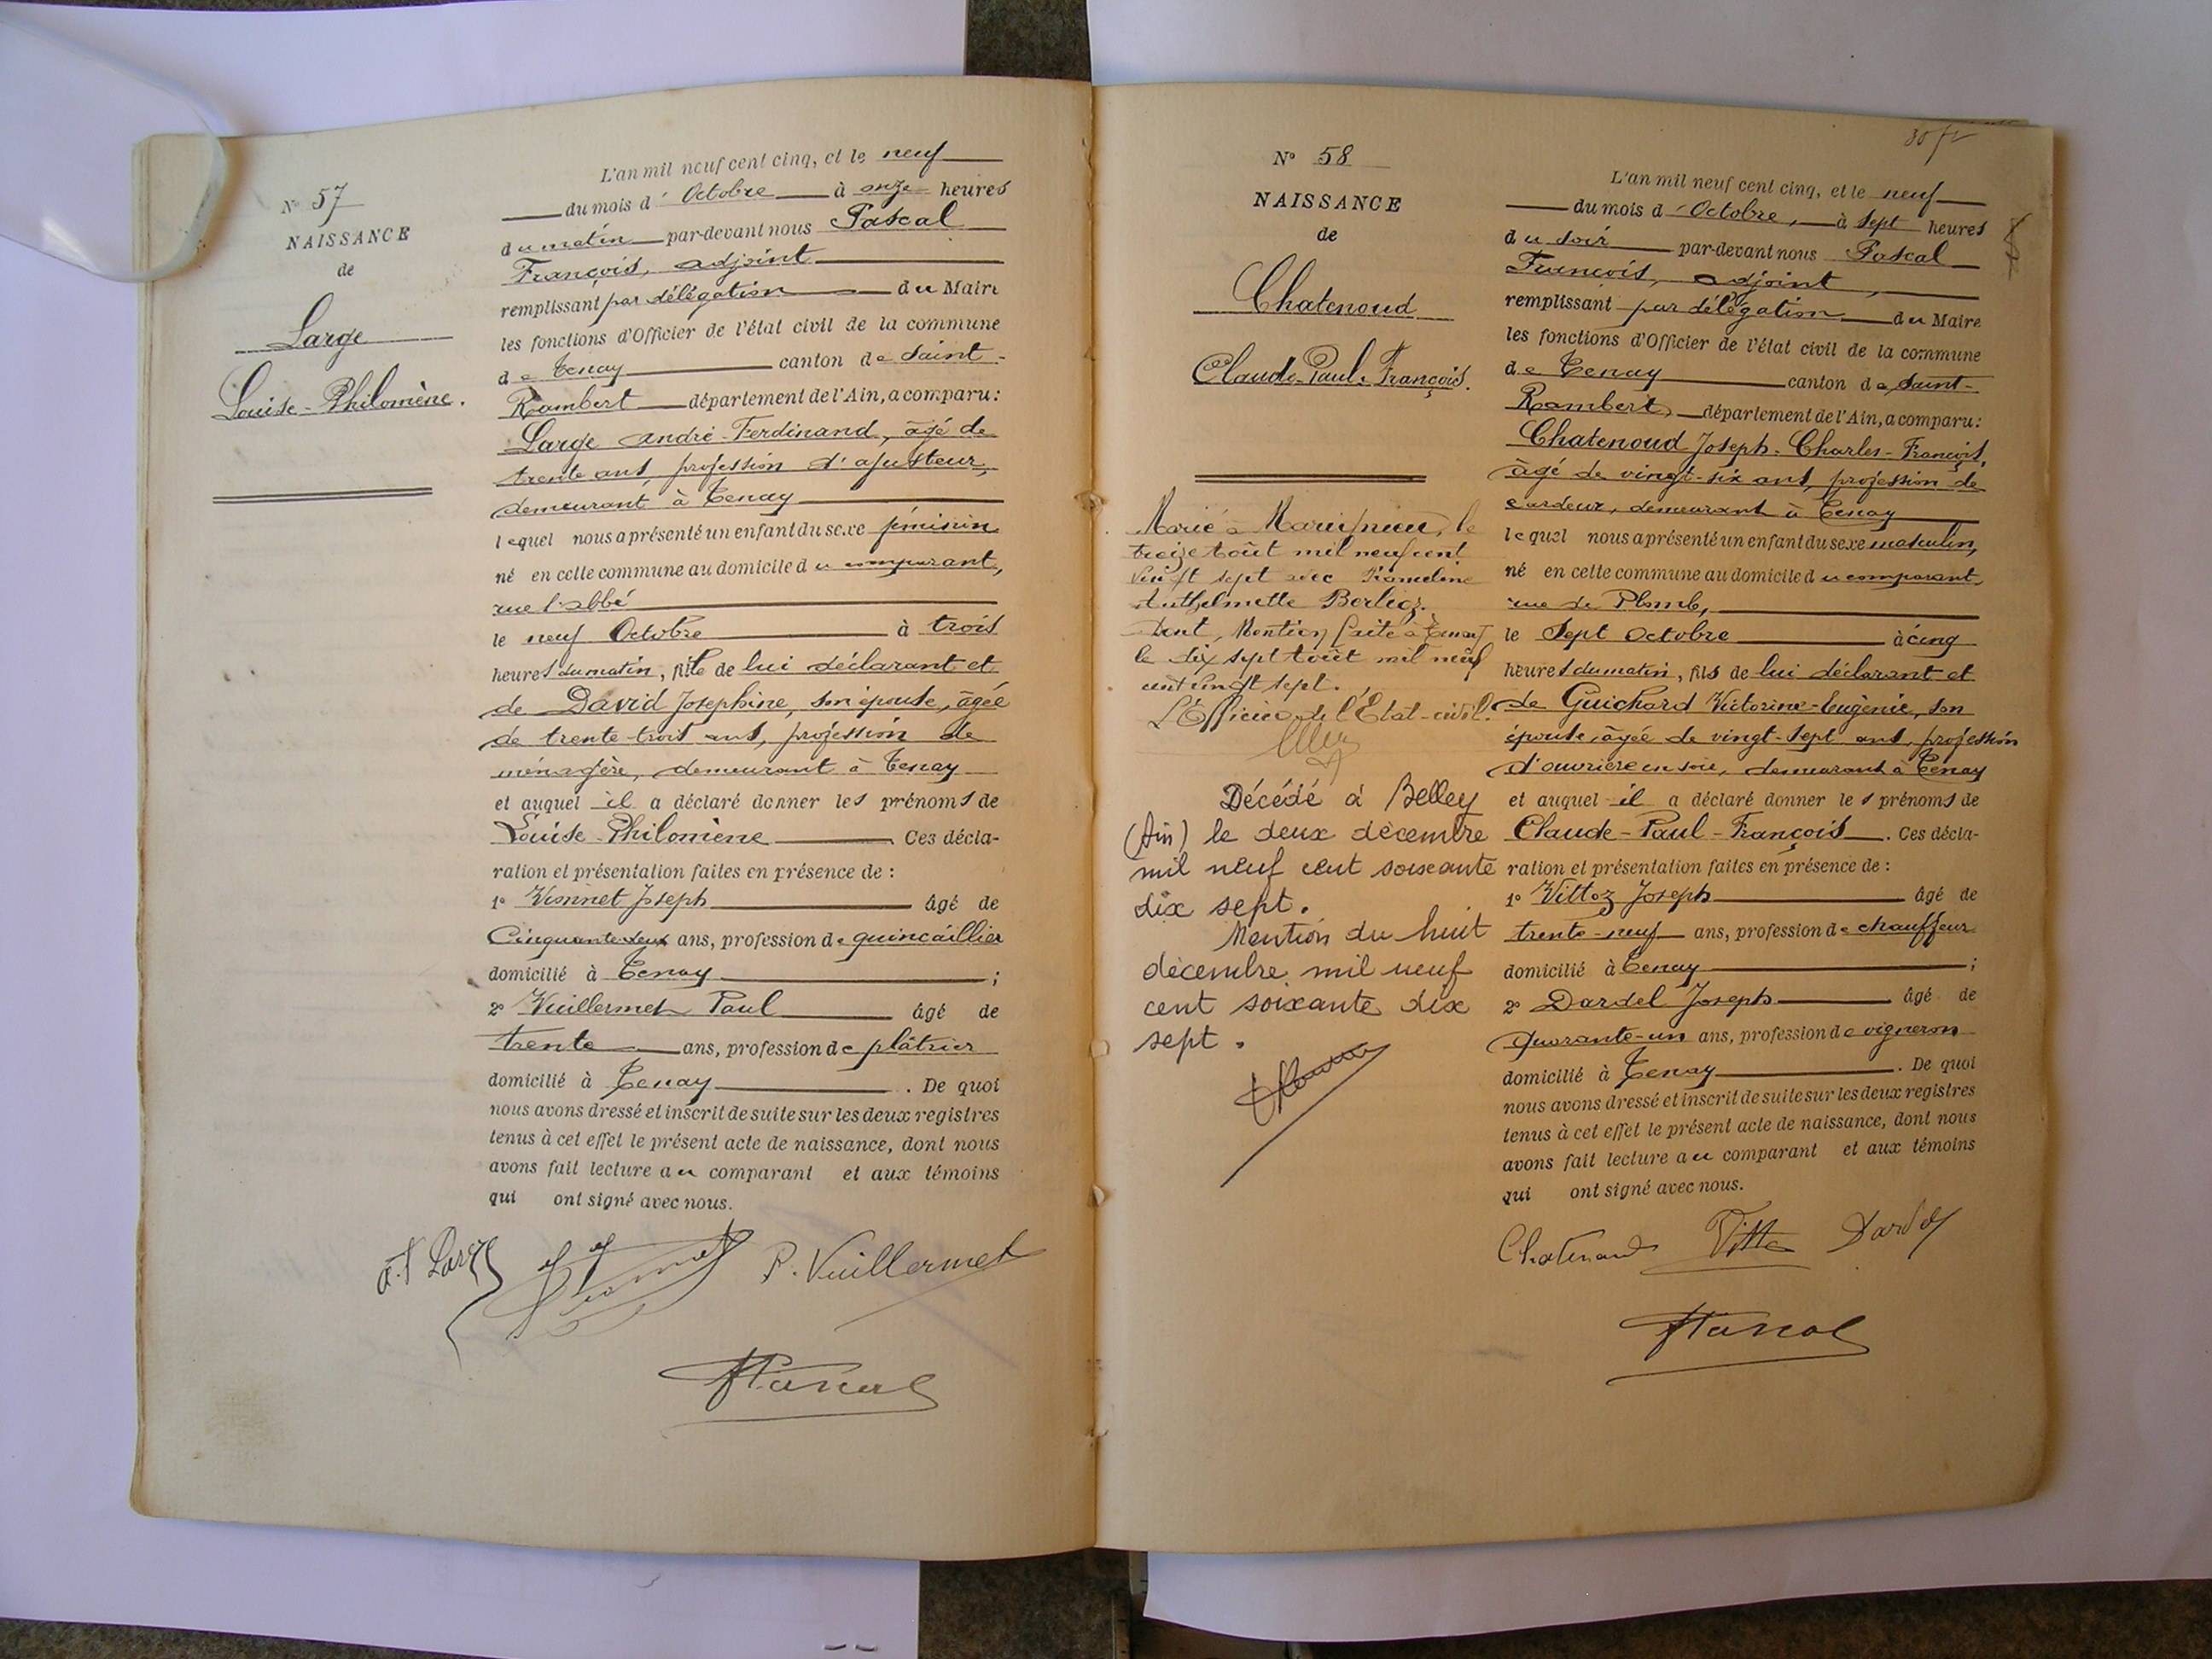 N° 57
NAISSANCE
de
Large
Louise-Philomène.
L'an mil neuf cent cinq, et le neuf
du mois d'Octobre à onze heures
du matin par-devant nous Pascal
François, adjoint
remplissant par délégation du Maire
les fonctions d'Officier de l'état civil de la commune
de Tenay canton de Saint-
Rambert département de l'Ain, a comparu:
Large André-Ferdinand, âgé de
trente ans, profession d'ajusteur,
demeurant à Tenay
lequel nous a présenté un enfant du sexe féminin
né en cette commune au domicile du comparant,
rue l'abbé
le neuf Octobre à trois
heures du matin, fille de lui déclarant et
de David Josephine, son épouse, âgée
de trente-trois ans, profession de
ménagère, demeurant à Tenay
et auquel il a déclaré donner les prénoms de
Louise-Philomène Ces décla-
ration et présentation faites en présence de :
1° Vionnet Joseph âgé de
Cinquante-deux ans, profession de quincaillier
domicilié à Tenay ;
2° Vuillermet Paul âgé de
trente ans, profession de plâtrier
domicilié à Tenay . De quoi
nous avons dressé et inscrit de suite sur les deux registres
tenus à cet effet le présent acte de naissance, dont nous
avons fait lecture au comparant et aux témoins
qui ont signé avec nous.
A.F Large
P. Vuillermet
FPascal
30 fr
N° 58
NAISSANCE
de
Chatenoud
Claude-Paul-François.
Marié à Marignieu, le
treize Août mil neuf cent
vingt sept avec
Anthelmette Berlioz.
Dont, Mention faite à Tenay
le dix sept Août mil neuf
cent vingt sept.
L'Officier de l'Etat-civil.
Décédé à Belley
(Ain) le deux décembre
mil neuf cent soixante
dix sept.
Mention du huit
décembre mil neuf
cent soixante dix
sept.
L'an mil neuf cent cinq, et le neuf
du mois d'Octobre, à sept heures
du soir par-devant nous Pascal
François, adjoint,
remplissant par délégation du Maire
les fonctions d'Officier de l'état civil de la commune
de Tenay canton de Saint-
Rambert, département de l'Ain, a comparu:
Chatenoud Joseph-Charles-François,
âgé de vingt-six ans, profession de
cardeur, demeurant à Tenay
lequel nous a présenté un enfant du sexe masculin,
né en cette commune au domicile du comparant,
rue de Plomb,
le Sept Octobre à cinq
heures du matin, fils de lui déclarant et
de Guichard Victorine-Eugénie, son
épouse, âgée de vingt-sept ans, profession
d'ouvrière en soie, demeurant à Tenay
et auquel il a déclaré donner les prénoms de
Claude-Paul-François . Ces décla-
ration et présentation faites en présence de :
1° Vittoz Joseph âgé de
trente-neuf ans, profession de chauffeur
domicilié à Tenay ;
2° Dardel Joseph âgé de
Quarante-un ans, profession de vigneron
domicilié à Tenay . De quoi
nous avons dressé et inscrit de suite sur les deux registres
tenus à cet effet le présent acte de naissance, dont nous
avons fait lecture au comparant et aux témoins
qui ont signé avec nous.
Chatenoud Vittoz Dardel
FPascal